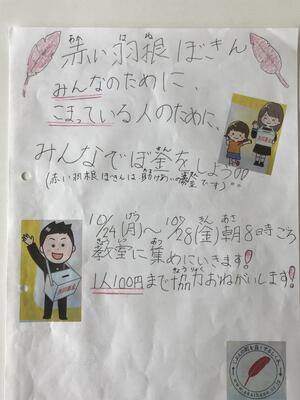 赤い羽根ぼきん
みんなのために、
こまっている人のために、
みんなでぼ金をしよう
(赤い羽根ぼきんは助けあいの募金です)
10/24(月)～10/28(金)朝8時ごろ
教室に集めにいきます!
1人100円まで協力おねがいします!